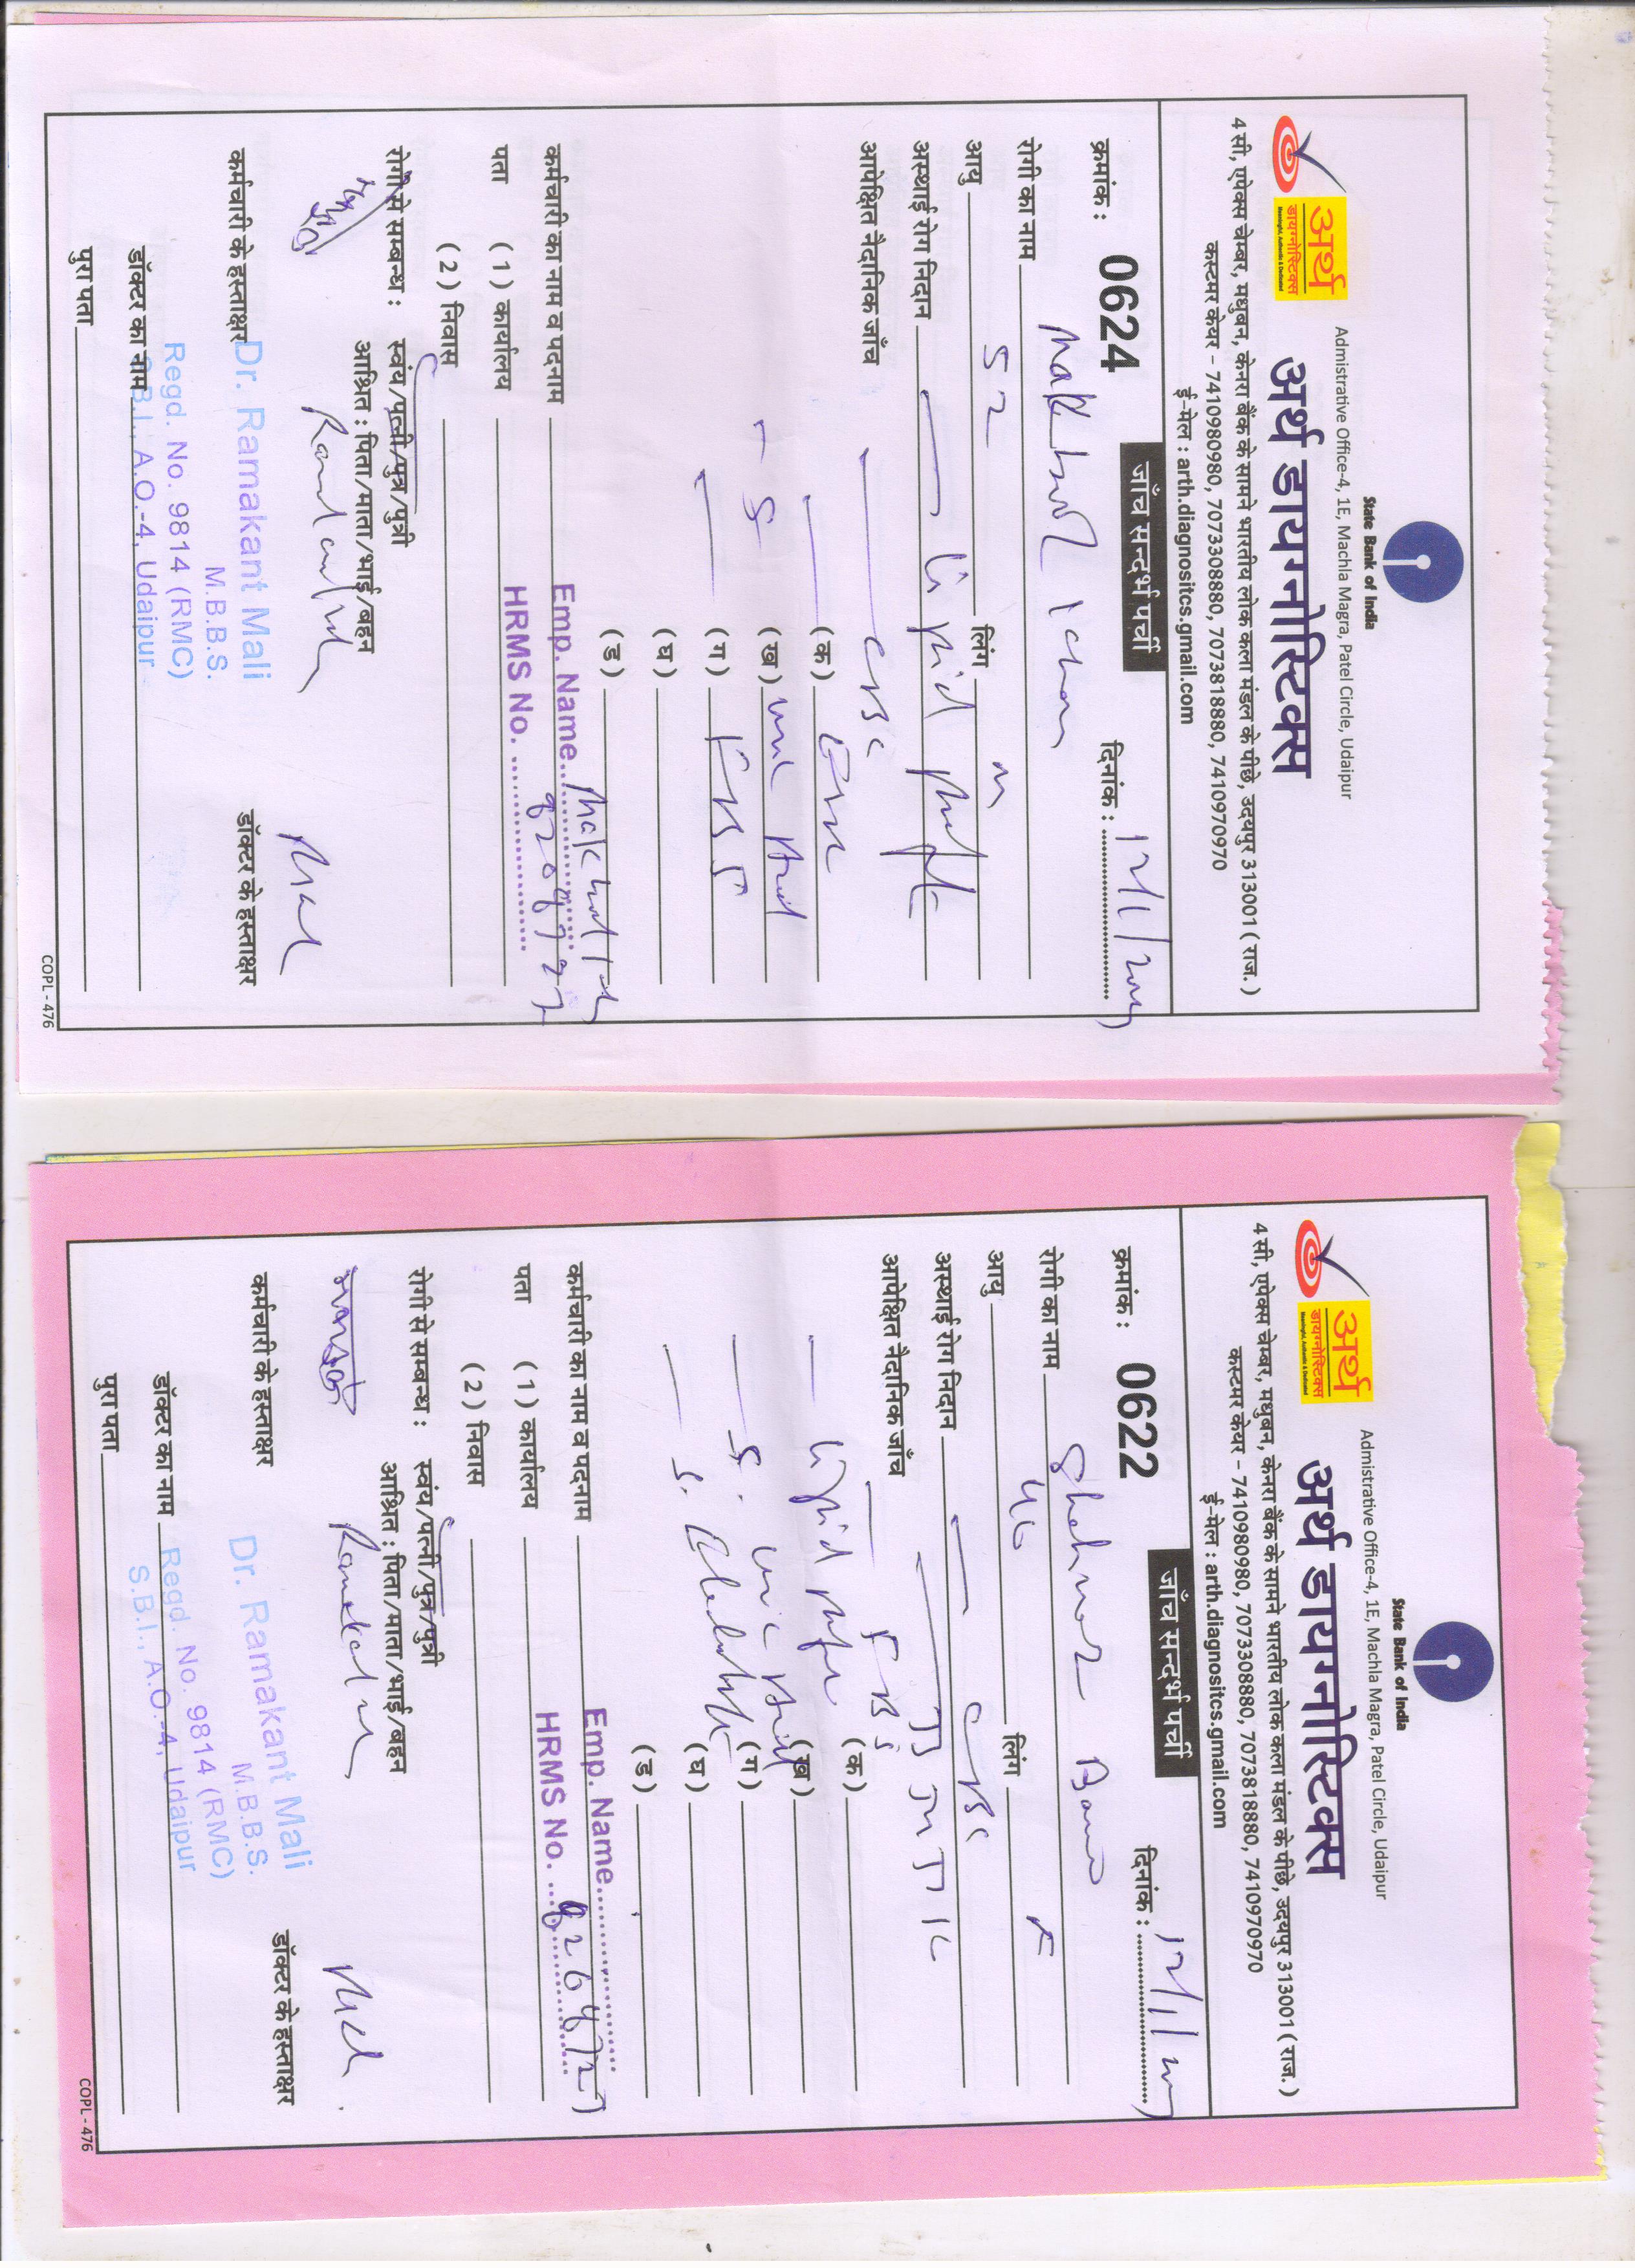 State Bank of India
Admistrative Office-4, 1E, Machla Magra, Patel Circle, Udaipur
अर्थ
डायग्नोस्टिक्स
अर्थ डायग्नोस्टिक्स
4 सी, ऐपेक्स चेम्बर, मधुबन, केनरा बैंक के सामने भारतीय लोक कला मंडल के पीछे, उदयपुर 313001 ( राज. )
कस्टमर केयर - 7410980980, 7073308880, 7073818880, 7410970970
ई-मेल : arth.diagnositcs.gmail.com
जाँच सन्दर्भ पर्ची
क्रमांक : 0624 दिनांक :
रोगी का नाम
आयु 52 लिंग M
अस्थाई रोग निदान Lipid
आपेक्षित नैदानिक जाँच CBC
(क)
(ख)
(ग) FBS
(घ)
(ड)
Emp. Name
कर्मचारी का नाम व पदनाम
HRMS No.
पता (1) कार्यालय
(2) निवास
रोगी से सम्बन्ध : स्वंय/पत्नी/पुत्र/पुत्री
आश्रित : पिता/माता/भाई/बहन
कर्मचारी के हस्ताक्षर डॉक्टर के हस्ताक्षर
Dr. Ramakant Mali
M.B.B.S.
Regd. No. 9814 (RMC)
डॉक्टर का नाम S.B.I., A.O.-4, Udaipur
पुरा पता
COPL - 476
State Bank of India
Admistrative Office-4, 1E, Machla Magra, Patel Circle, Udaipur
अर्थ
डायग्नोस्टिक्स
अर्थ डायग्नोस्टिक्स
4 सी, ऐपेक्स चेम्बर, मधुबन, केनरा बैंक के सामने भारतीय लोक कला मंडल के पीछे, उदयपुर 313001 ( राज. )
कस्टमर केयर - 7410980980, 7073308880, 7073818880, 7410970970
ई-मेल : arth.diagnositcs.gmail.com
जाँच सन्दर्भ पर्ची
क्रमांक : 0622 दिनांक :
रोगी का नाम Bano
आयु लिंग F
अस्थाई रोग निदान CBC
आपेक्षित नैदानिक जाँच
FBS
(क)
Lipid
(ख)
(ग)
(घ)
(ड)
Emp. Name
कर्मचारी का नाम व पदनाम
HRMS No.
पता (1) कार्यालय
(2) निवास
रोगी से सम्बन्ध : स्वंय/पत्नी/पुत्र/पुत्री
आश्रित : पिता/माता/भाई/बहन
कर्मचारी के हस्ताक्षर डॉक्टर के हस्ताक्षर
Dr. Ramakant Mali
M.B.B.S.
Regd. No. 9814 (RMC)
डॉक्टर का नाम S.B.I., A.O.-4, Udaipur
पुरा पता
COPL - 476